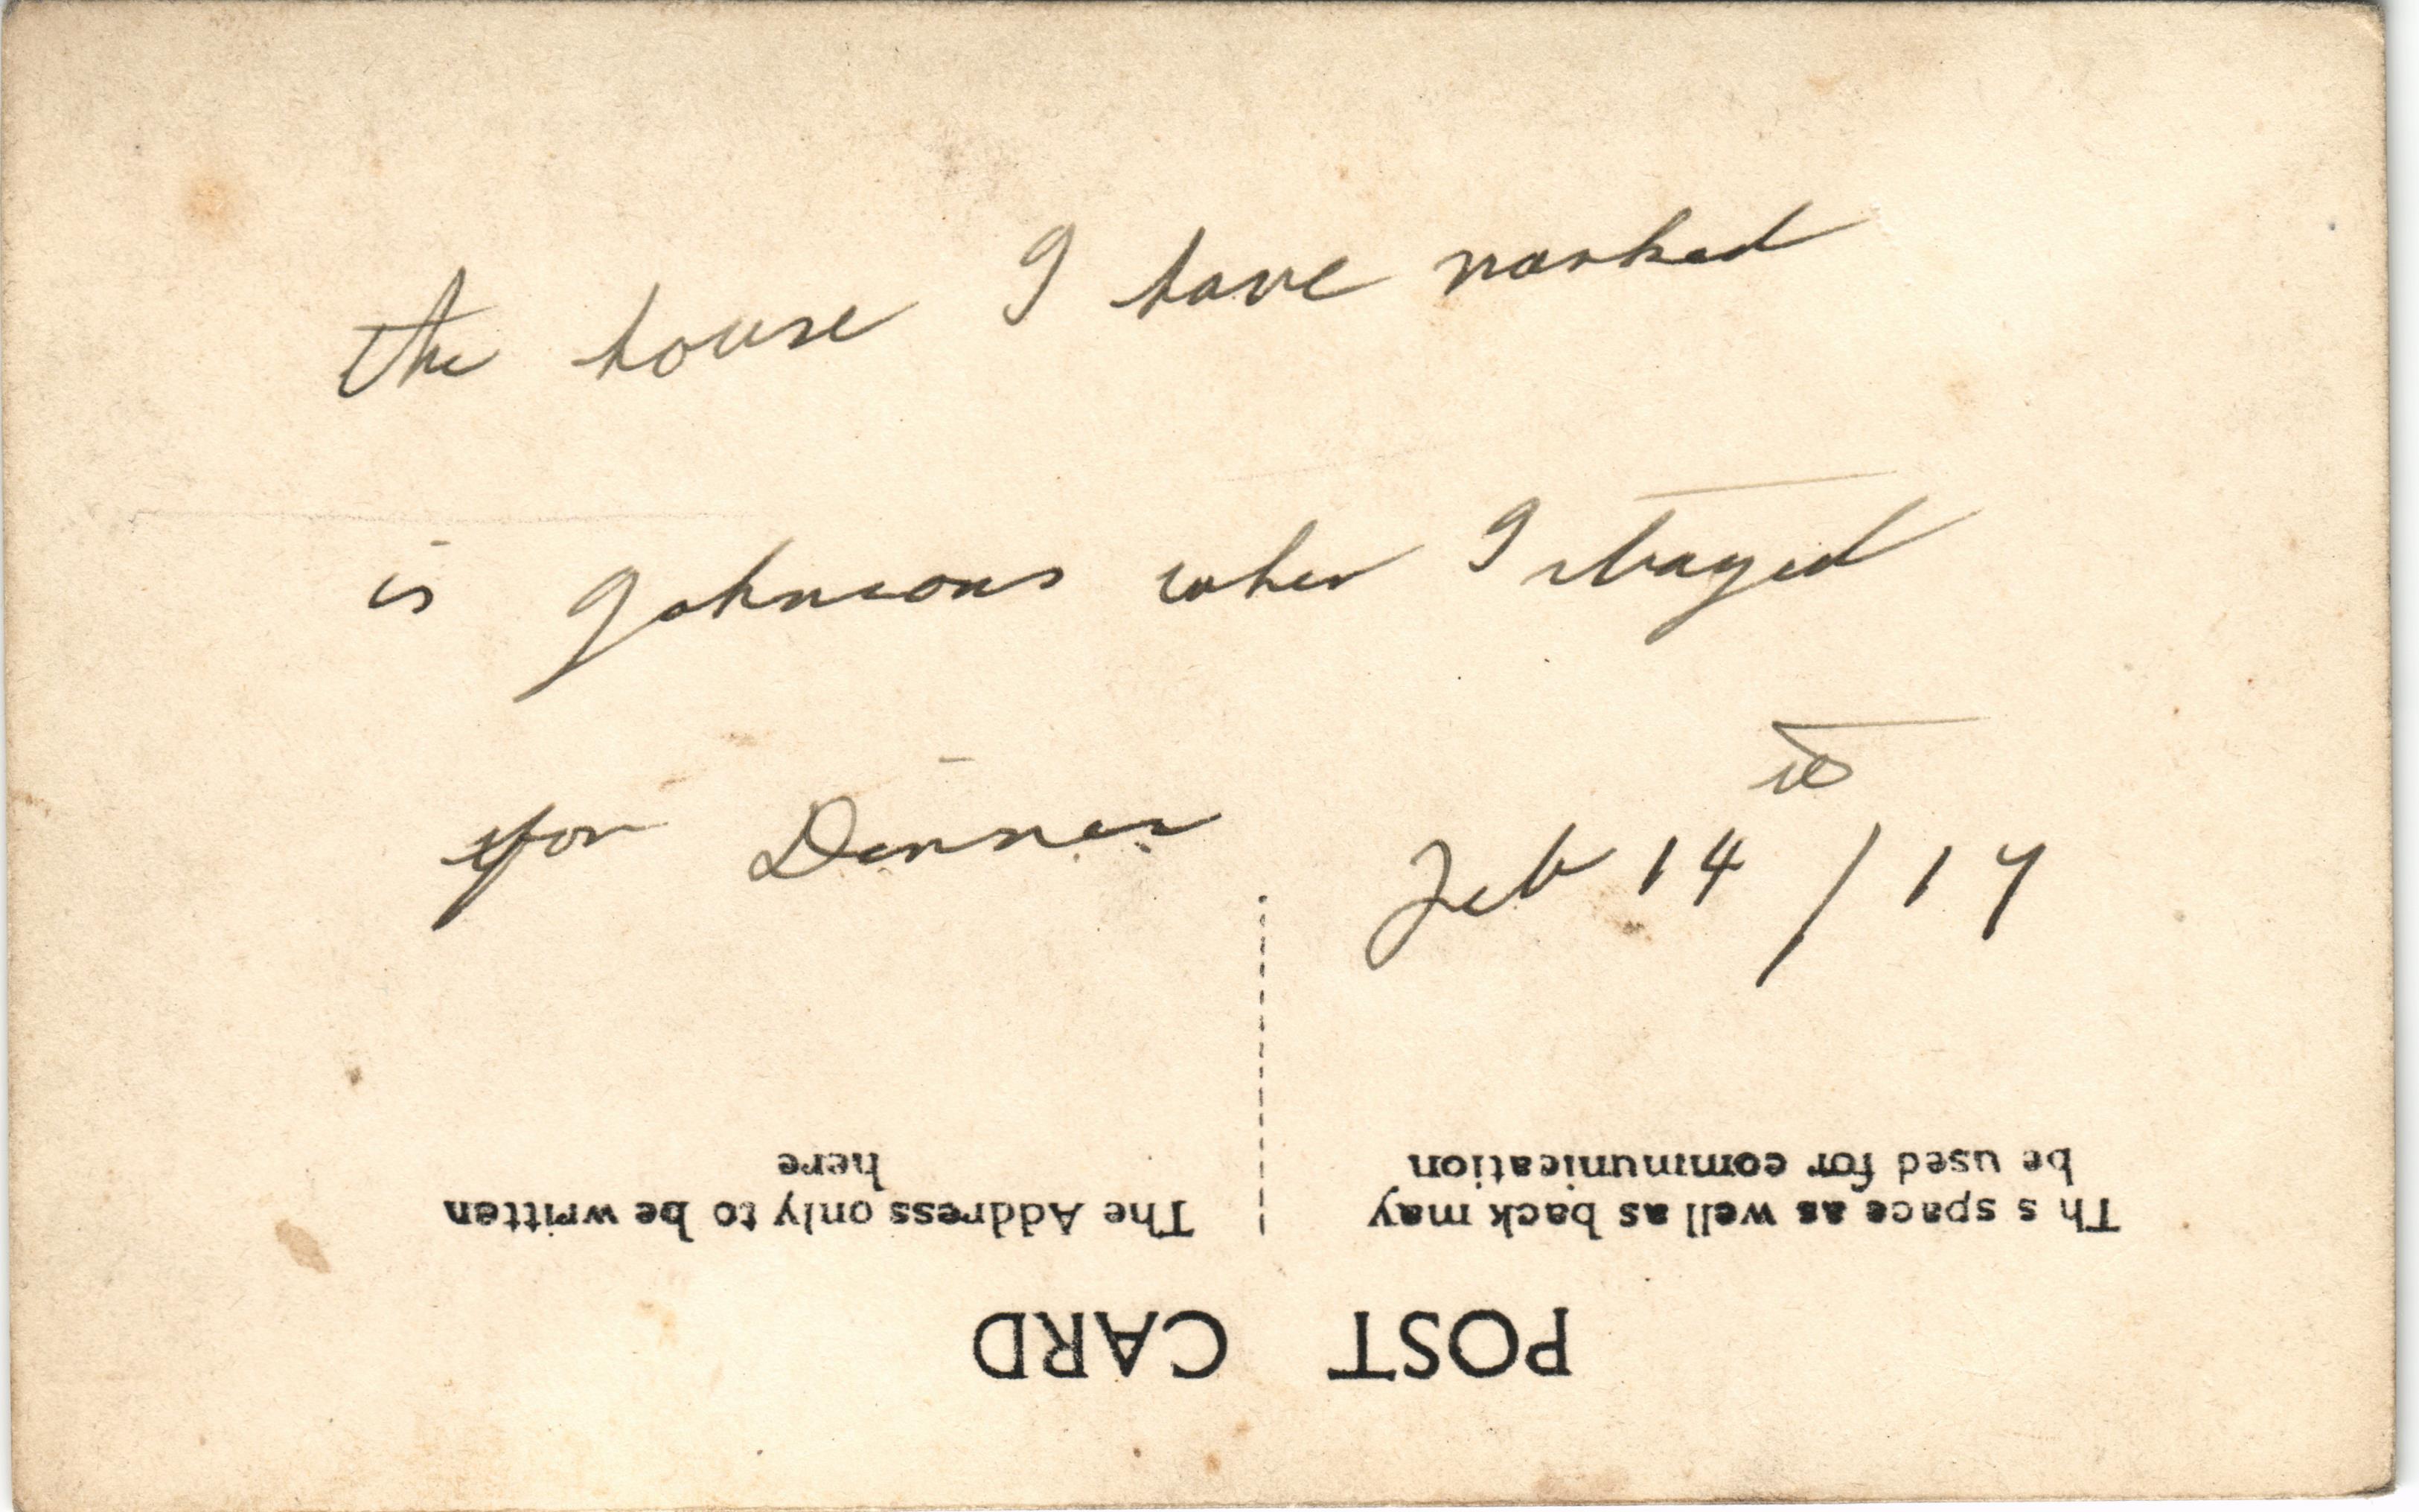 the house I have marked
is Johnsons when I stayed
for Dinner Feb 14th / 17
be used for communication
Th s space as well as back may
here
The Address only to be written
POST CARD